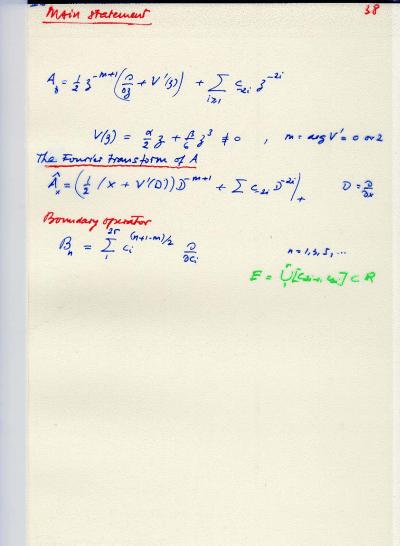 Main statement 38
A_z = ½ z^{-m+1} (∂/∂z + V'(z)) + Σ_{i≥1} c_{-2i} z^{-2i}
V(z) = α/2 z + β/6 z³ ≠ 0 , m = deg V' = 0 or 2
The Fourier transform of A
Â_x = (½ (x + V'(D)) D^{-m+1} + Σ c_{-2i} D^{-2i})_+ D = ∂/∂x
Boundary operator
B_n = Σ_1^{2r} c_i^{(n+1-m)/2} ∂/∂c_i n = 1, 3, 5, ...
E = ⋃_1^r [c_{2i-1}, c_{2i}] ⊂ R